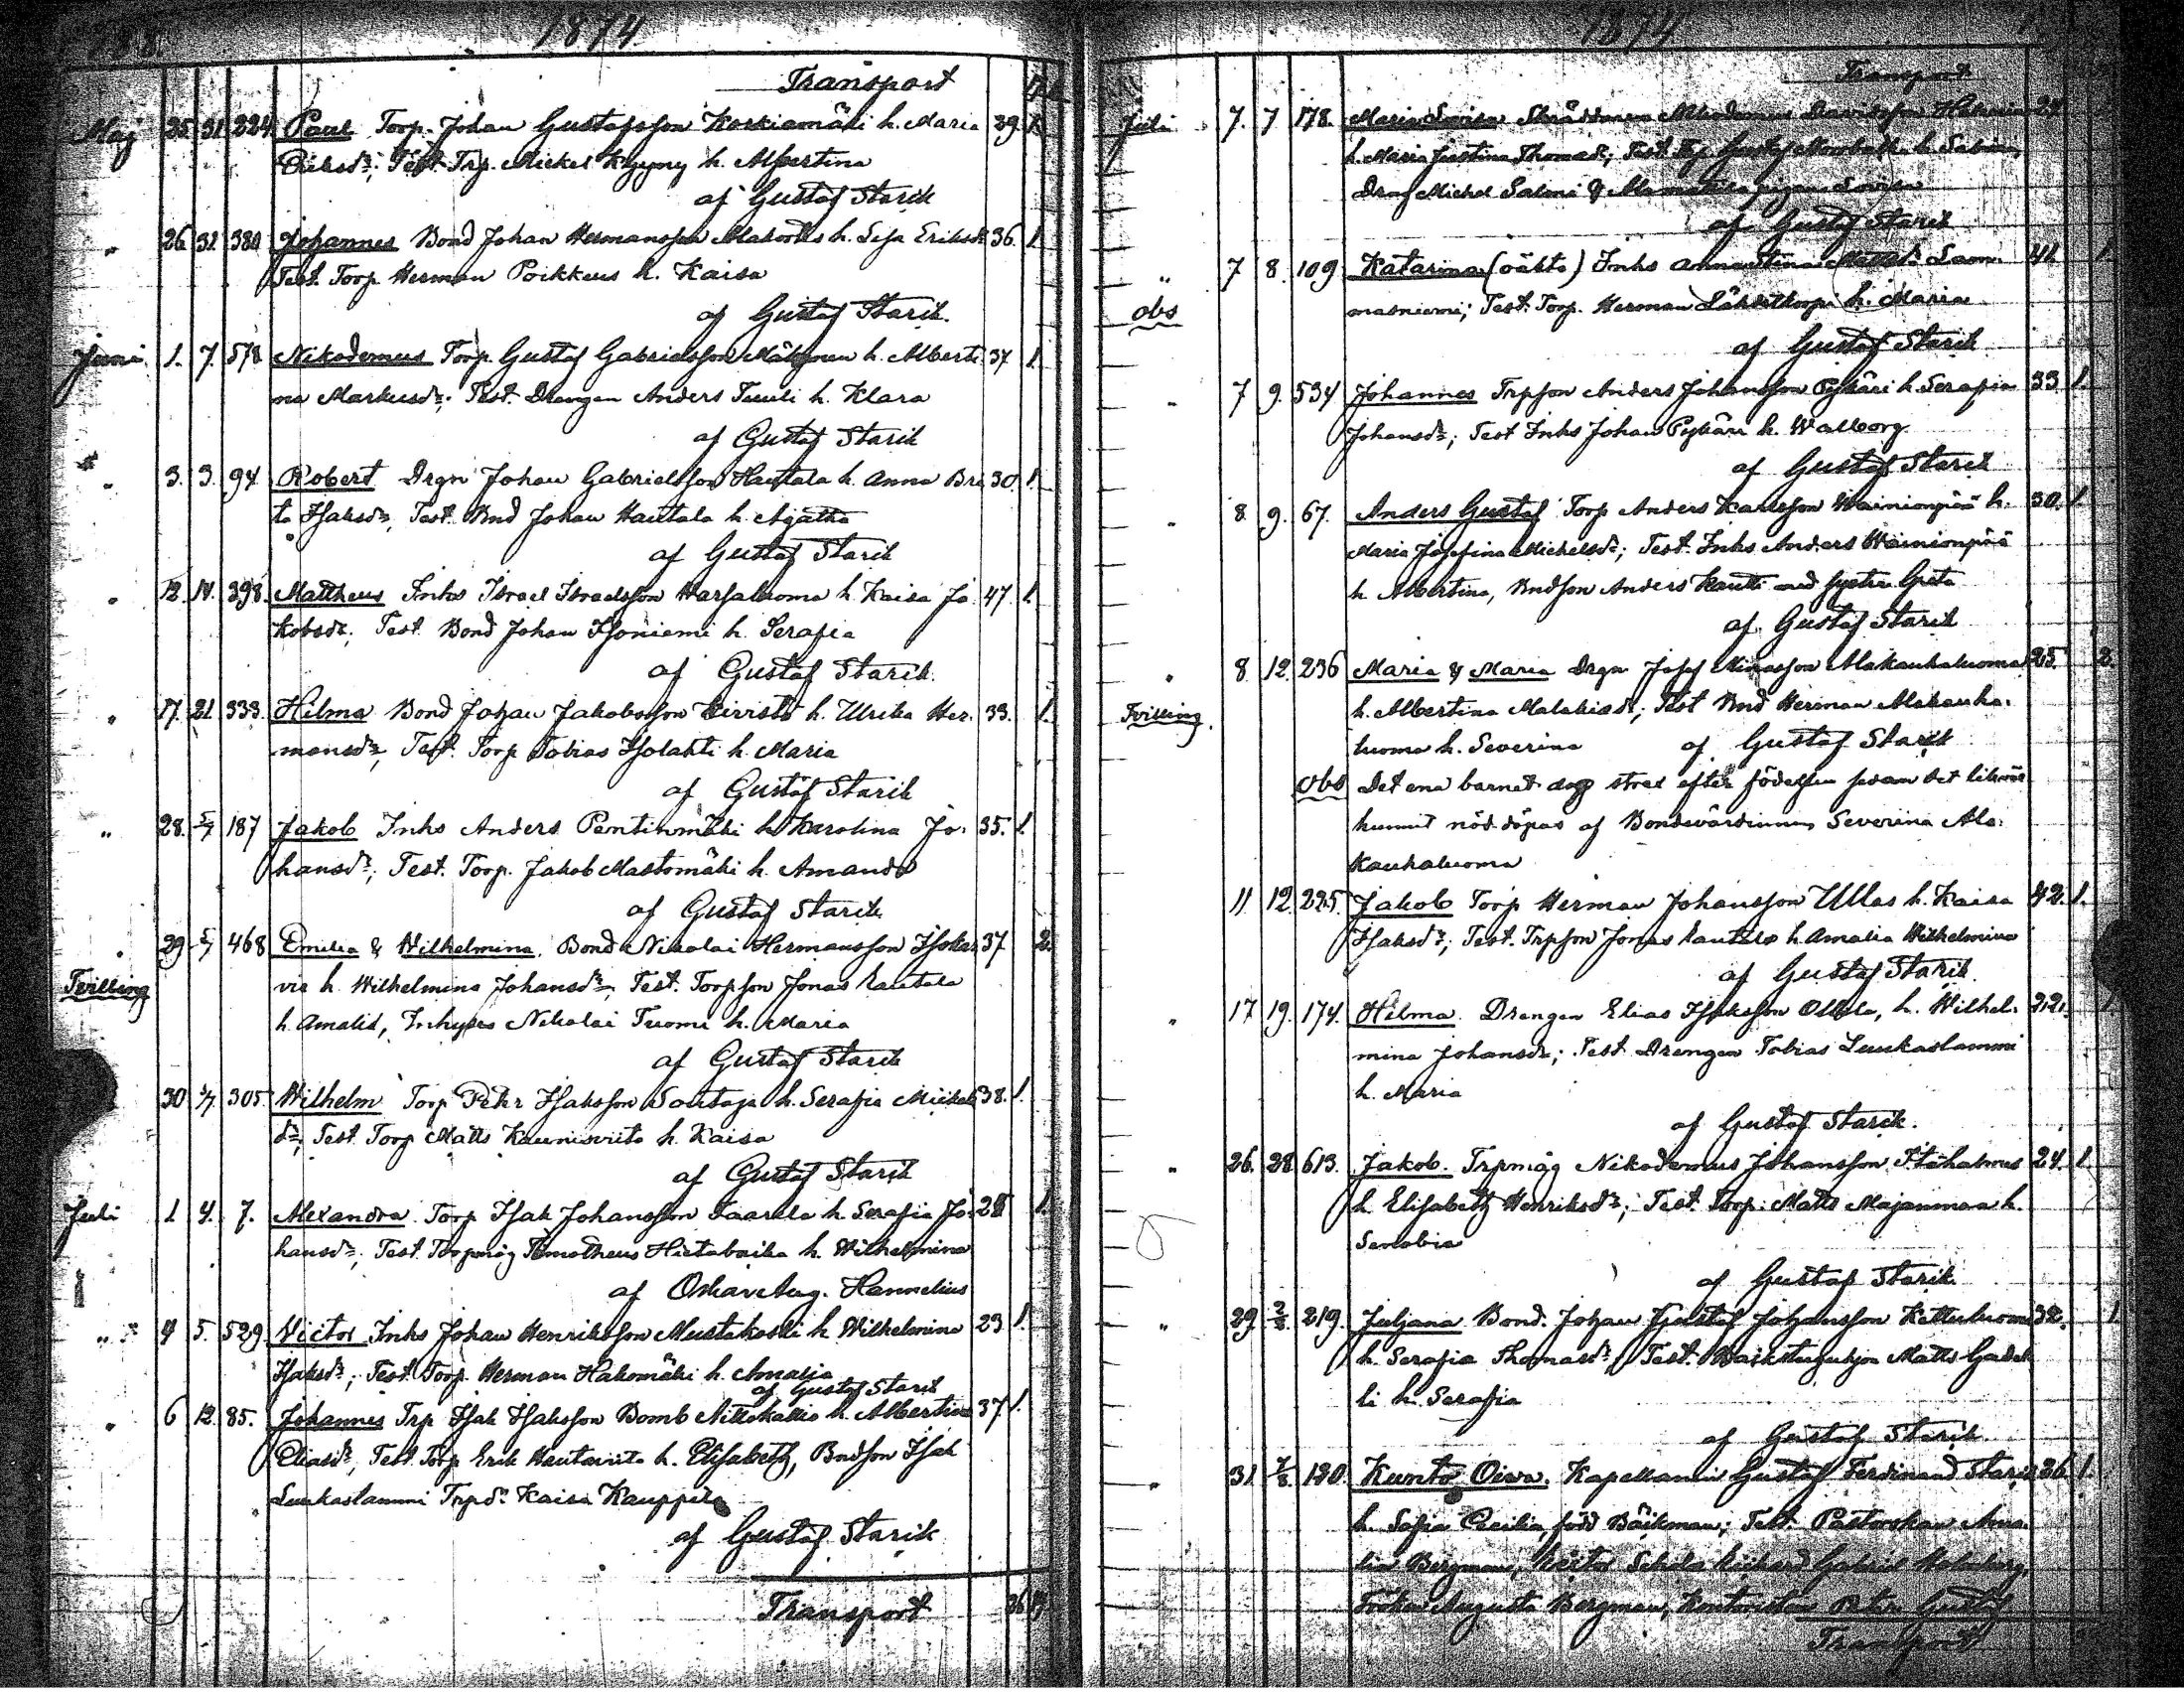 188.
1874
Transport
Maj 25. 31. 224. Paul Torp. Johan Gustafsson Koskiamäki h. Maria 39. 1.
Eriksdr; Test. Trp. Mickel Kyyny h. Albertina
af Gustaf Starik
" 26. 31. 380 Johannes Bond Johan Hermansson h. Lisa Eriksdr 36. 1.
Test. Torp Herman Poikkeus h. Kaisa
af Gustaf Starik.
Juni 1. 7. 578 Nikodemus Torp. Gustaf Gabrielsson h. Alberti 37 1.
na Markusdr; Test. Drengen Anders Tuuli h. Klara
af Gustaf Starik
" 3. 3. 94 Robert Drgn Johan Gabrielsson Hautala h. Anna Bri 30. 1.
ta Isaksdr, Test. Bnd Johan Hautala h. Agatha
af Gustaf Starik
" 12. 14. 398. Mattheus Inhs Israel Israelsson Harjaluoma h. Kaisa Ja 47. 1.
kobsdr; Test. Bond Johan Isoniemi h. Serafia
af Gustaf Starik.
" 17. 21. 333. Hilma Bond Johan Jakobsson h. Ulrika Her. 33. 1.
mansdr, Test. Torp Tobias Isolahti h. Maria
af Gustaf Starik
" 28. 5/7 187 Jakob Inhs Anders Pentinmäki h. Karolina Jo. 35. 1.
hansdr; Test. Torp. Jakob Mastomäki h. Amanda
af Gustaf Starik
" 29 5/7 468 Emilia & Wilhelmina. Bond Nikolai Hermansson 37 2.
Tvilling h. Wilhelmina Johansdr, Test. Torpson Jonas Rautala
h. Amalia, Inhyses Nikolai Tuomi h. Maria
af Gustaf Starik
30 305 Wilhelm Torp Pehr Isaksson h. Serafia Mickels 38. 1.
dr, Test. Torp Matts Kaunisviita h. Kaisa
af Gustaf Starik
Juli 1 4. 7. Alexandra. Torp Isak Johansson Saarela h. Serafia Jo 1
hansdr, Test. Torpmåg Timotheus h. Wilhelmina
af Oskar Aug. Hannelius
" 4 5. 529 Victor Inhs Johan Henriksson Mustakoski h. Wilhelmina 23 1.
Isaksdr; Test. Torp. Herman Hakomäki h. Amalia
af Gustaf Starik
" 6 12. 85. Johannes Trp Isak Isaksson Bomb Nittokallio h. Albertina 37. 1.
Eliasdr, Test. Torp Erik Hautaviita h. Elisabeth, Bndson Isak
Luukaslammi Trpdr Kaisa Kauppila
af Gustaf Starik
Transport

1874
Transport
Juli 7. 7 178. Maria Lovisa Skräddaren Nikodemus Davidsson
h. Maria Justina Thomasdr; Test. Trp Gustaf h. Sabina,
Drng Michel Salmi & pigan Lovisa
af Gustaf Starik
" 7 8. 109 Katarina (oäkta) Inhs Annastina Mattsdr Lam- 41 1.
obs masniemi; Test. Torp. Herman h. Maria
af Gustaf Starik
" 7 9. 534 Johannes Trpson Anders Johansson Pykäri h. Serafia 33 1.
Johansdr; Test Inhs Johan Pykäri h. Walborg.
af Gustaf Starik
" 8 9. 67. Anders Gustaf Torp Anders Karlsson Wainionpää h. 30. 1.
Maria Josefina Michelsdr; Test. Inhs Anders Wainionpää
h. Albertina, Bndson Anders Kautti med syster Greta
af Gustaf Starik
" 8 12. 236 Maria & Maria Drgn Josef Alakauhaluoma 25. 2.
Tvilling. h. Albertina Malakiasdr; Test Bnd Herman Alakauha-
luoma h. Severina af Gustaf Starik
Obs Det ena barnet dog strax efter födelsen sedan det likväl
hunnit nöd döpas af Bondevärdinnan Severina Ala-
kauhaluoma
11. 12. 225. Jakob Torp Herman Johansson Ullas h. Kaisa 42. 1.
Isaksdr; Test. Trpson Jonas Rautala h. Amalia Wilhelmina
af Gustaf Starik.
" 17 19. 174. Hilma. Drengen Elias Isaksson Ollila, h. Wilhel- 22. 1
mina Johansdr; Test. Drengen Tobias Luukaslammi
h. Maria
af Gustaf Starik.
" 26. 28 613. Jakob. Trpmåg Nikodemus Johansson 24. 1.
h. Elisabeth Henriksdr; Test. Torp. Matts Majanmaa h.
Senobia
af Gustaf Starik
" 29. 2/8 219. Juljana Bond. Johan Gustaf Johansson 32. 1
h. Serafia Thomasdr; Test. Matts
h. Serafia
af Gustaf Starik.
" 31. 7/8 180. Kunto Oiva. Kapellanen Gustaf Ferdinand Starik 36. 1.
h. Sofia Cecilia, född Bäckman; Test. Pastorskan Ama-
lia Bergman, Gabriel
Fröken Augusta Bergman, Gustaf
Transport